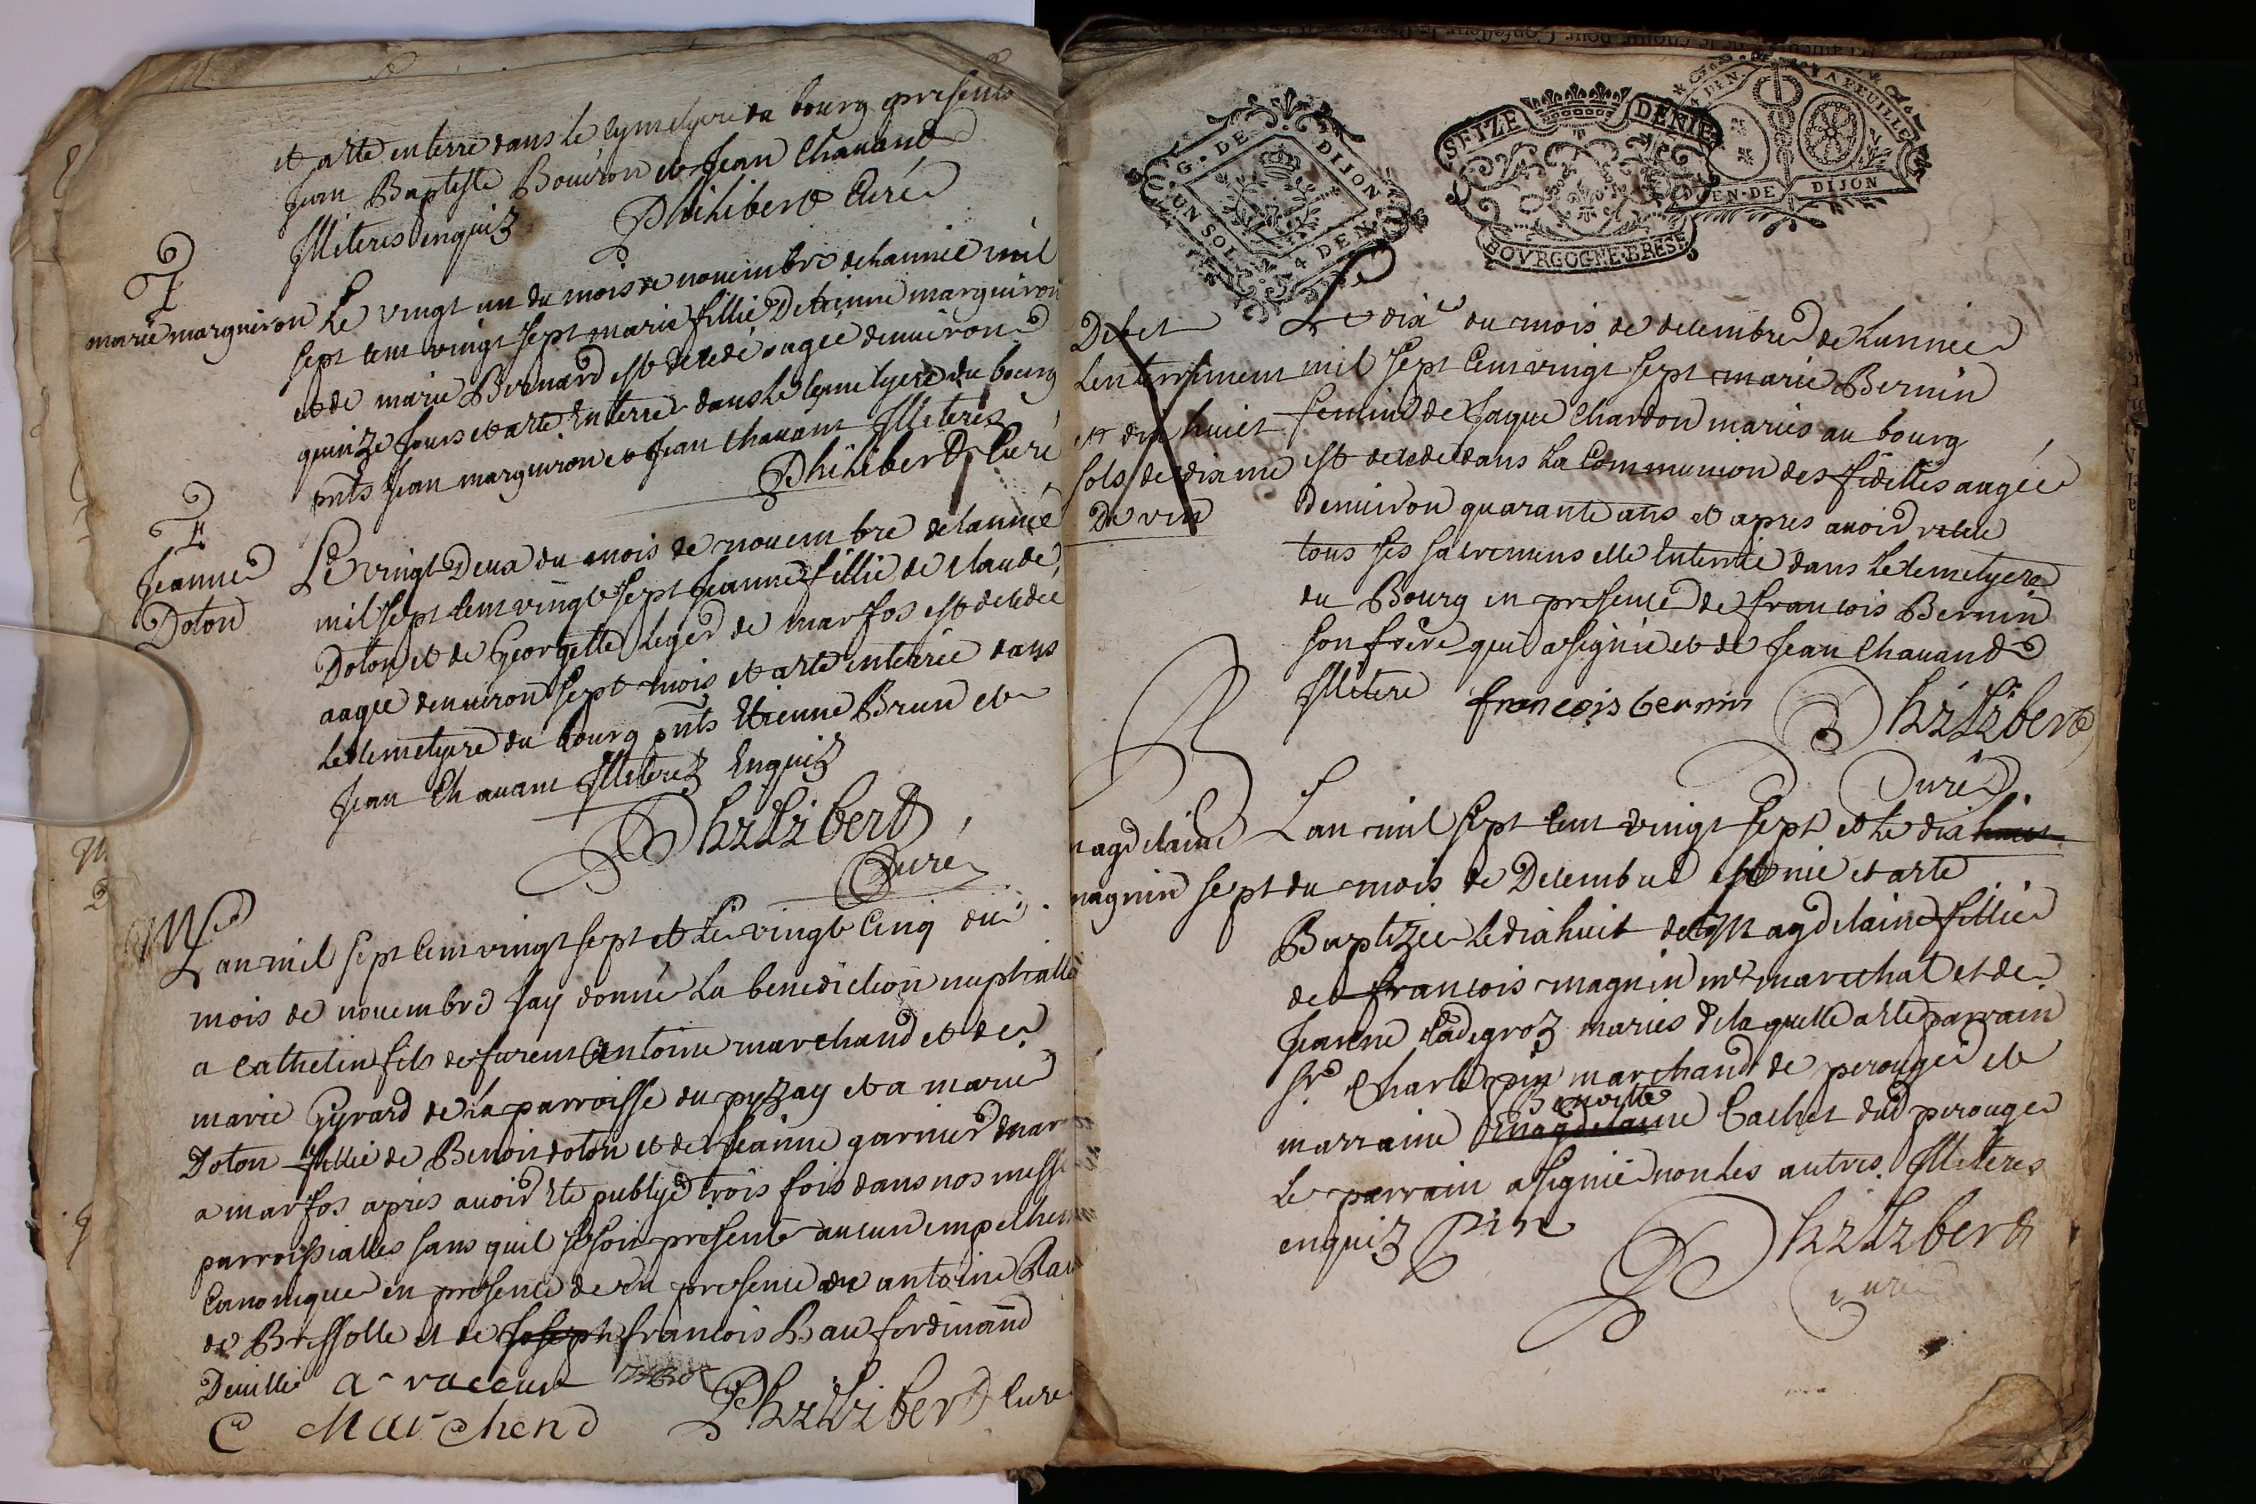 et a été enterré dans le cymetyere du bourg presents
Jean Baptiste Bouiron et Jean Chavand
Illiteres enquis Philibert Curé
marie marguiron
Le vingt un du mois de novembre de lannée mil
sept cent vingt sept marie fillie Detienne marguiron
et de marie Bernard est decedé aagee denuiron
quinze Jours et a ete Enterrée dans le cymetyere du bourg
pnts Jean marguiron et Jean Chavant Illiteres
Philibert Curé
Jeanne
Doton
Le vingt Deux du mois de nouembre de lannée
mil sept cent vingt sept Jeanne fillie de Claude
Doton et de Georgette Leger de marfos est decedée
aagée denuiron sept mois et a ete enterrée dans
le cemetyere du bourg pnts Etienne Brun et
Jean Chavant Illiterez Enquiz
Philibert
Curé
Lan mil sept cent vingt sept et le vingt Cinq du
mois de nouembre Jay donné La benediction nuptialle
a Cathelin fils de furent Antoine marchand et de
marie Gyrard de la parroisse du pyzay et a marie
Doton fillie de Benoin doton et de Jeanne garnier
a marfos apres auoir ete publyé trois fois dans nos messe
parroissialles sans quil se soit presenté aucun empeche
Canonique en presence de en presence de antoine Rau
de Bressolle et de Joseph francois Rau ferdinand
Deuille a racour
C Marchend Philibert Cure
G. DE DIJON
UN SOL 4 DEN.
SEIZE DENIE
BOVRGOGNE. BRESE
4 DEN. LA FEUILLE
EN. DE DIJON
Debet
Lenterrement
et dix huict
sols de dixme
De vin
Le dix du mois de decembre de Lannée
mil sept cent vingt sept marie Bernin
femme de Jaque Chardon mariés au bourg
est decedé dans La Communion des fidelles aagée
denuiron quarante ans et apres auoir recue
tous ses sacremens elle Enterrée dans Le cemetyere
du Bourg en presence de francois Bernin
son frere qui a signé et de Jean Chavand
Illitere francois bernin Philibert
Curé
magdelaine
magnin
Lan mil sept cent vingt sept et Le dix huict
sept du mois de Decembre est née et a ete
Baptizée le dix huit de Magdelaine fillie
de francois magnin me marechal et de
Jeanne Cadegroz mariés de laquelle a ete parrain
sr. Charle pin marchand de perouge et
Benoitte
marraine magdelaine Cachet dud perouge
Le parrain a signé non les autres Illiteres
enquiz Pin Philibert
curé